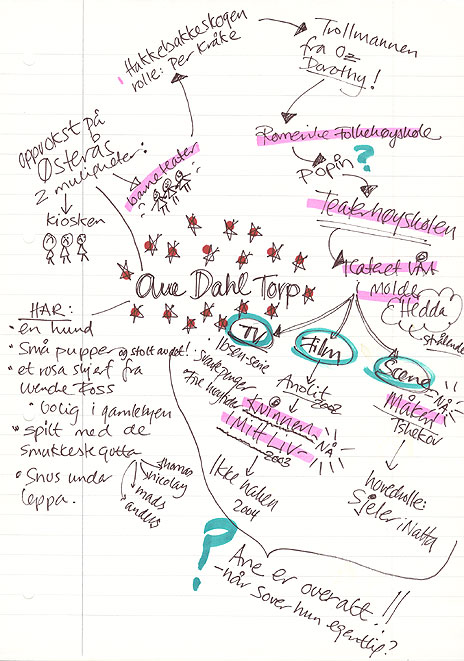 Hakkebakkeskogen
rolle: Per Kråke
Trollmannen
fra Oz
Dorothy!
oppvokst på
Østerås
2 muligheter:
Kiosken
barneteater
Romerike Folkehøyskole
Popin ?
Teaterhøyskolen
Teateret Vårt
Molde
Hedda
strålende
Ane Dahl Torp
HAR:
• en hund
• Små pupper og stolt av det!
• et rosa skjerf fra
Wenche Foss
• bolig i gamlebyen
• spilt med de
smukkeste gutta
thomas
nicolay
mads
anders
• Snus under
leppa.
TV
Ibsen-serie
Svarte penger
Film
Anolit
2002
Kvinnen
i Mitt Liv
NÅ
2003
Ikke naken
2004
Scene
NÅ
Måken
Tsjekov
hovedrolle:
Sjeler i Natta
?
Ane er overalt!!
-når sover hun egentlig?